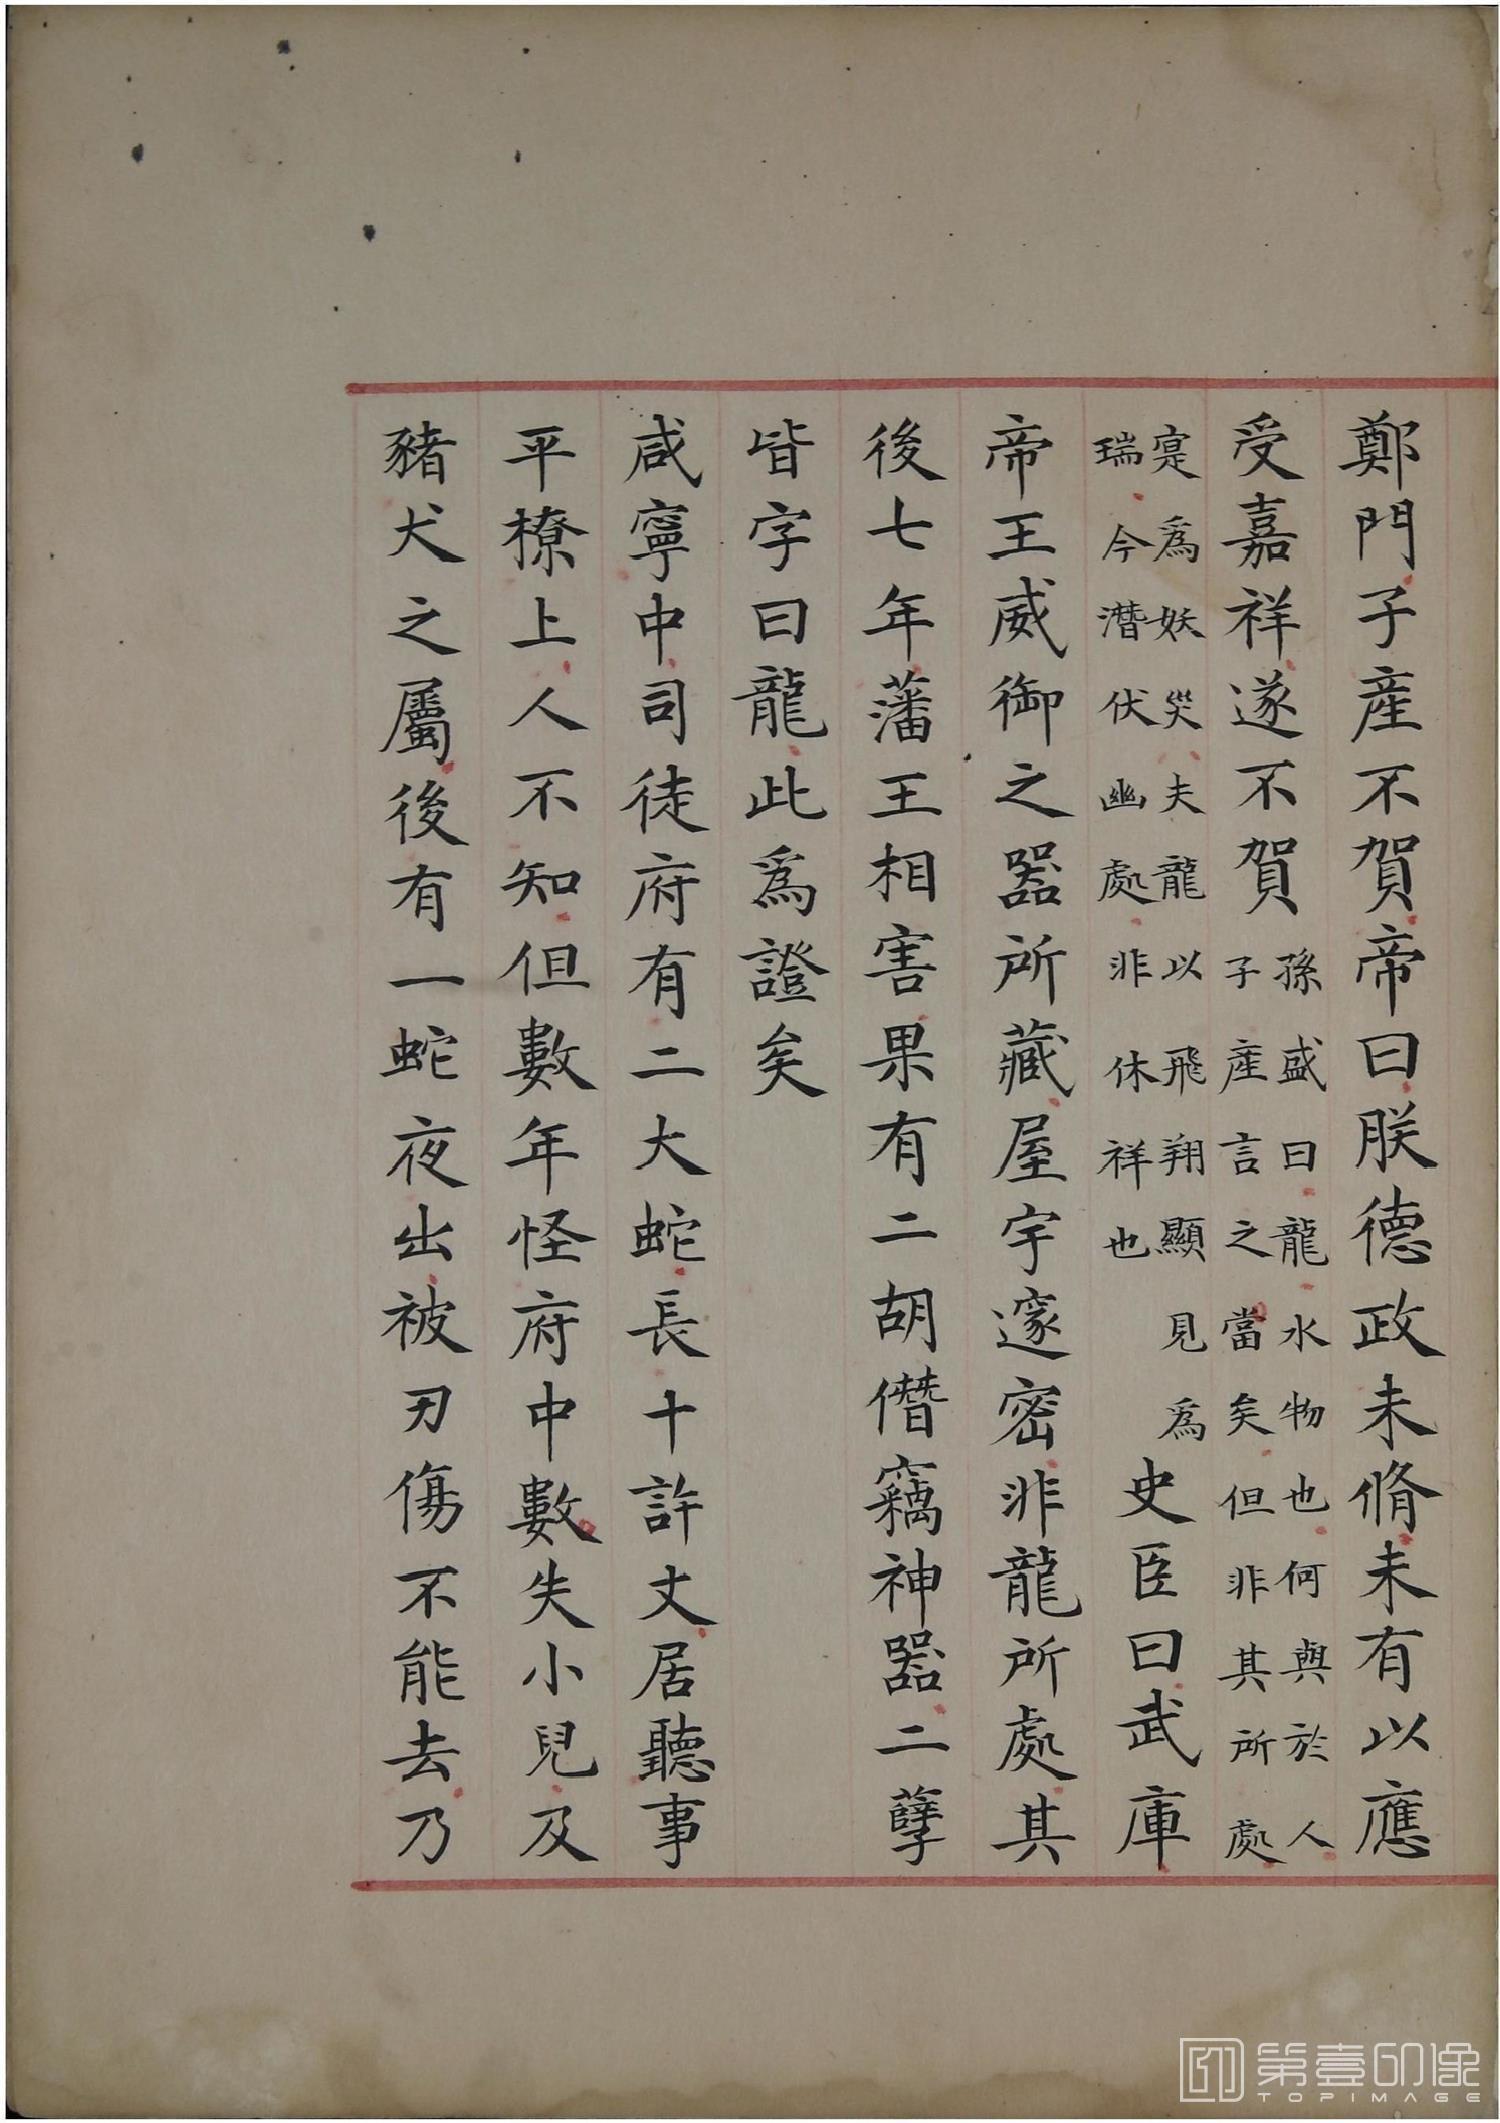 鄭門子產不賀帝曰朕德政未脩未有以應
受嘉祥遂不賀孫盛曰龍水物也何與於人子產言之當矣但非其所處
寔為妖災夫龍以飛翔顯見為瑞今潛伏幽處非休祥也史臣曰武庫
帝王威御之器所藏屋宇邃密非龍所處其
後七年藩王相害果有二胡僭竊神器二孽
皆字曰龍此為證矣
咸寧中司徒府有二大蛇長十許丈居聽事
平橑上人不知但數年怪府中數失小兒及
豬犬之屬後有一蛇夜出被刃傷不能去乃
第壹印像
TOPIMAGE